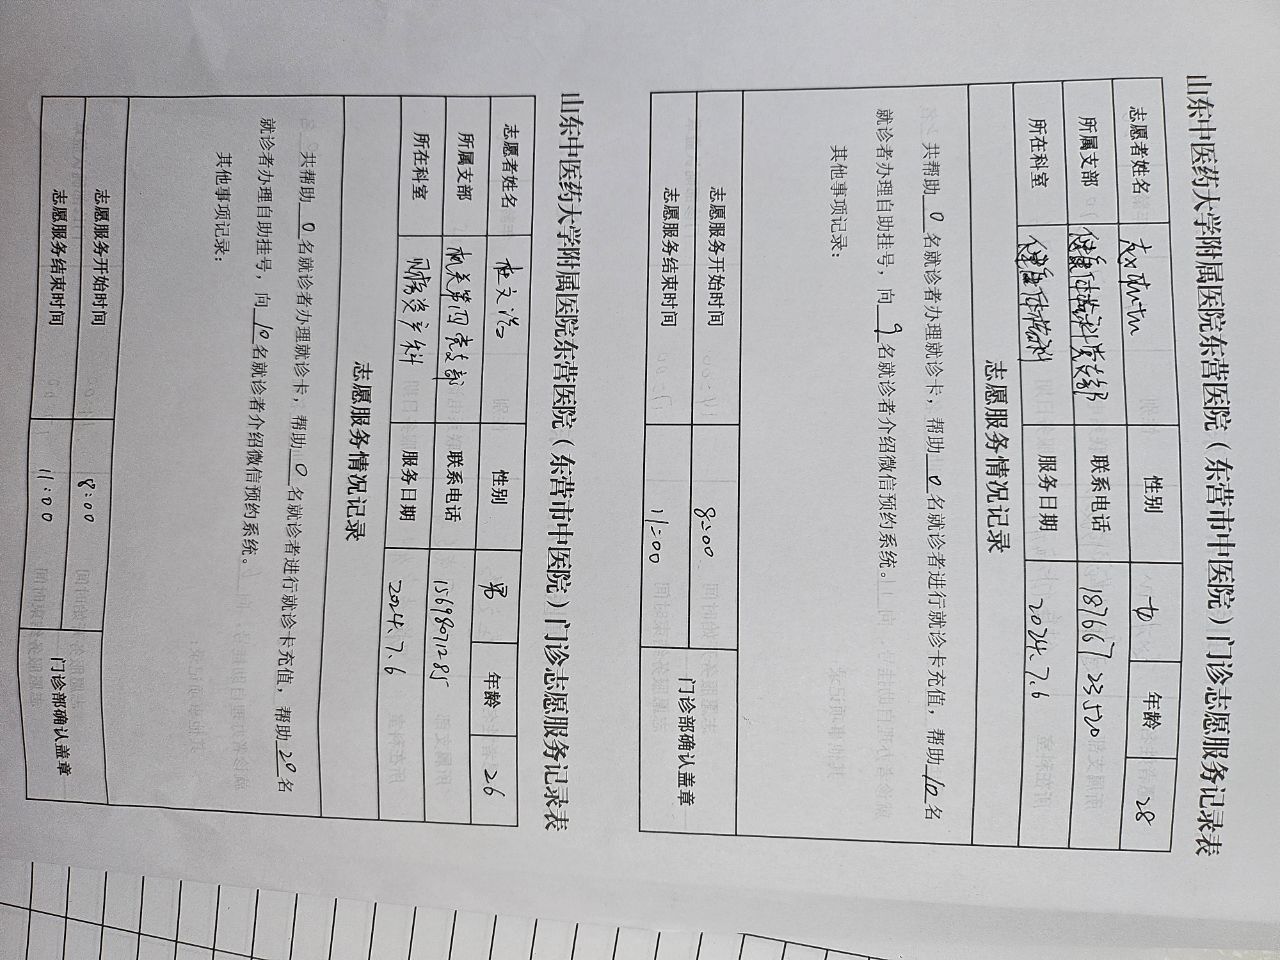 山东中医药大学附属医院东营医院（东营市中医院）门诊志愿服务记录表
志愿者姓名 性别 女 年龄 28
所属支部 健康体检科党支部 联系电话 18766723520
所在科室 健康体检科 服务日期 2024.7.6
志愿服务情况记录
共帮助 0 名就诊者办理就诊卡，帮助 0 名就诊者进行就诊卡充值，帮助 10 名
就诊者办理自助挂号，向 9 名就诊者介绍微信预约系统。
其他事项记录：
志愿服务开始时间 8:00 门诊部确认盖章
志愿服务结束时间 11:00
山东中医药大学附属医院东营医院（东营市中医院）门诊志愿服务记录表
志愿者姓名 杜文浩 性别 男 年龄 26
所属支部 机关第四党支部 联系电话 15698071285
所在科室 财务资产科 服务日期 2024.7.6
志愿服务情况记录
共帮助 0 名就诊者办理就诊卡，帮助 0 名就诊者进行就诊卡充值，帮助 20 名
就诊者办理自助挂号，向 10 名就诊者介绍微信预约系统。
其他事项记录：
志愿服务开始时间 8:00 门诊部确认盖章
志愿服务结束时间 11:00